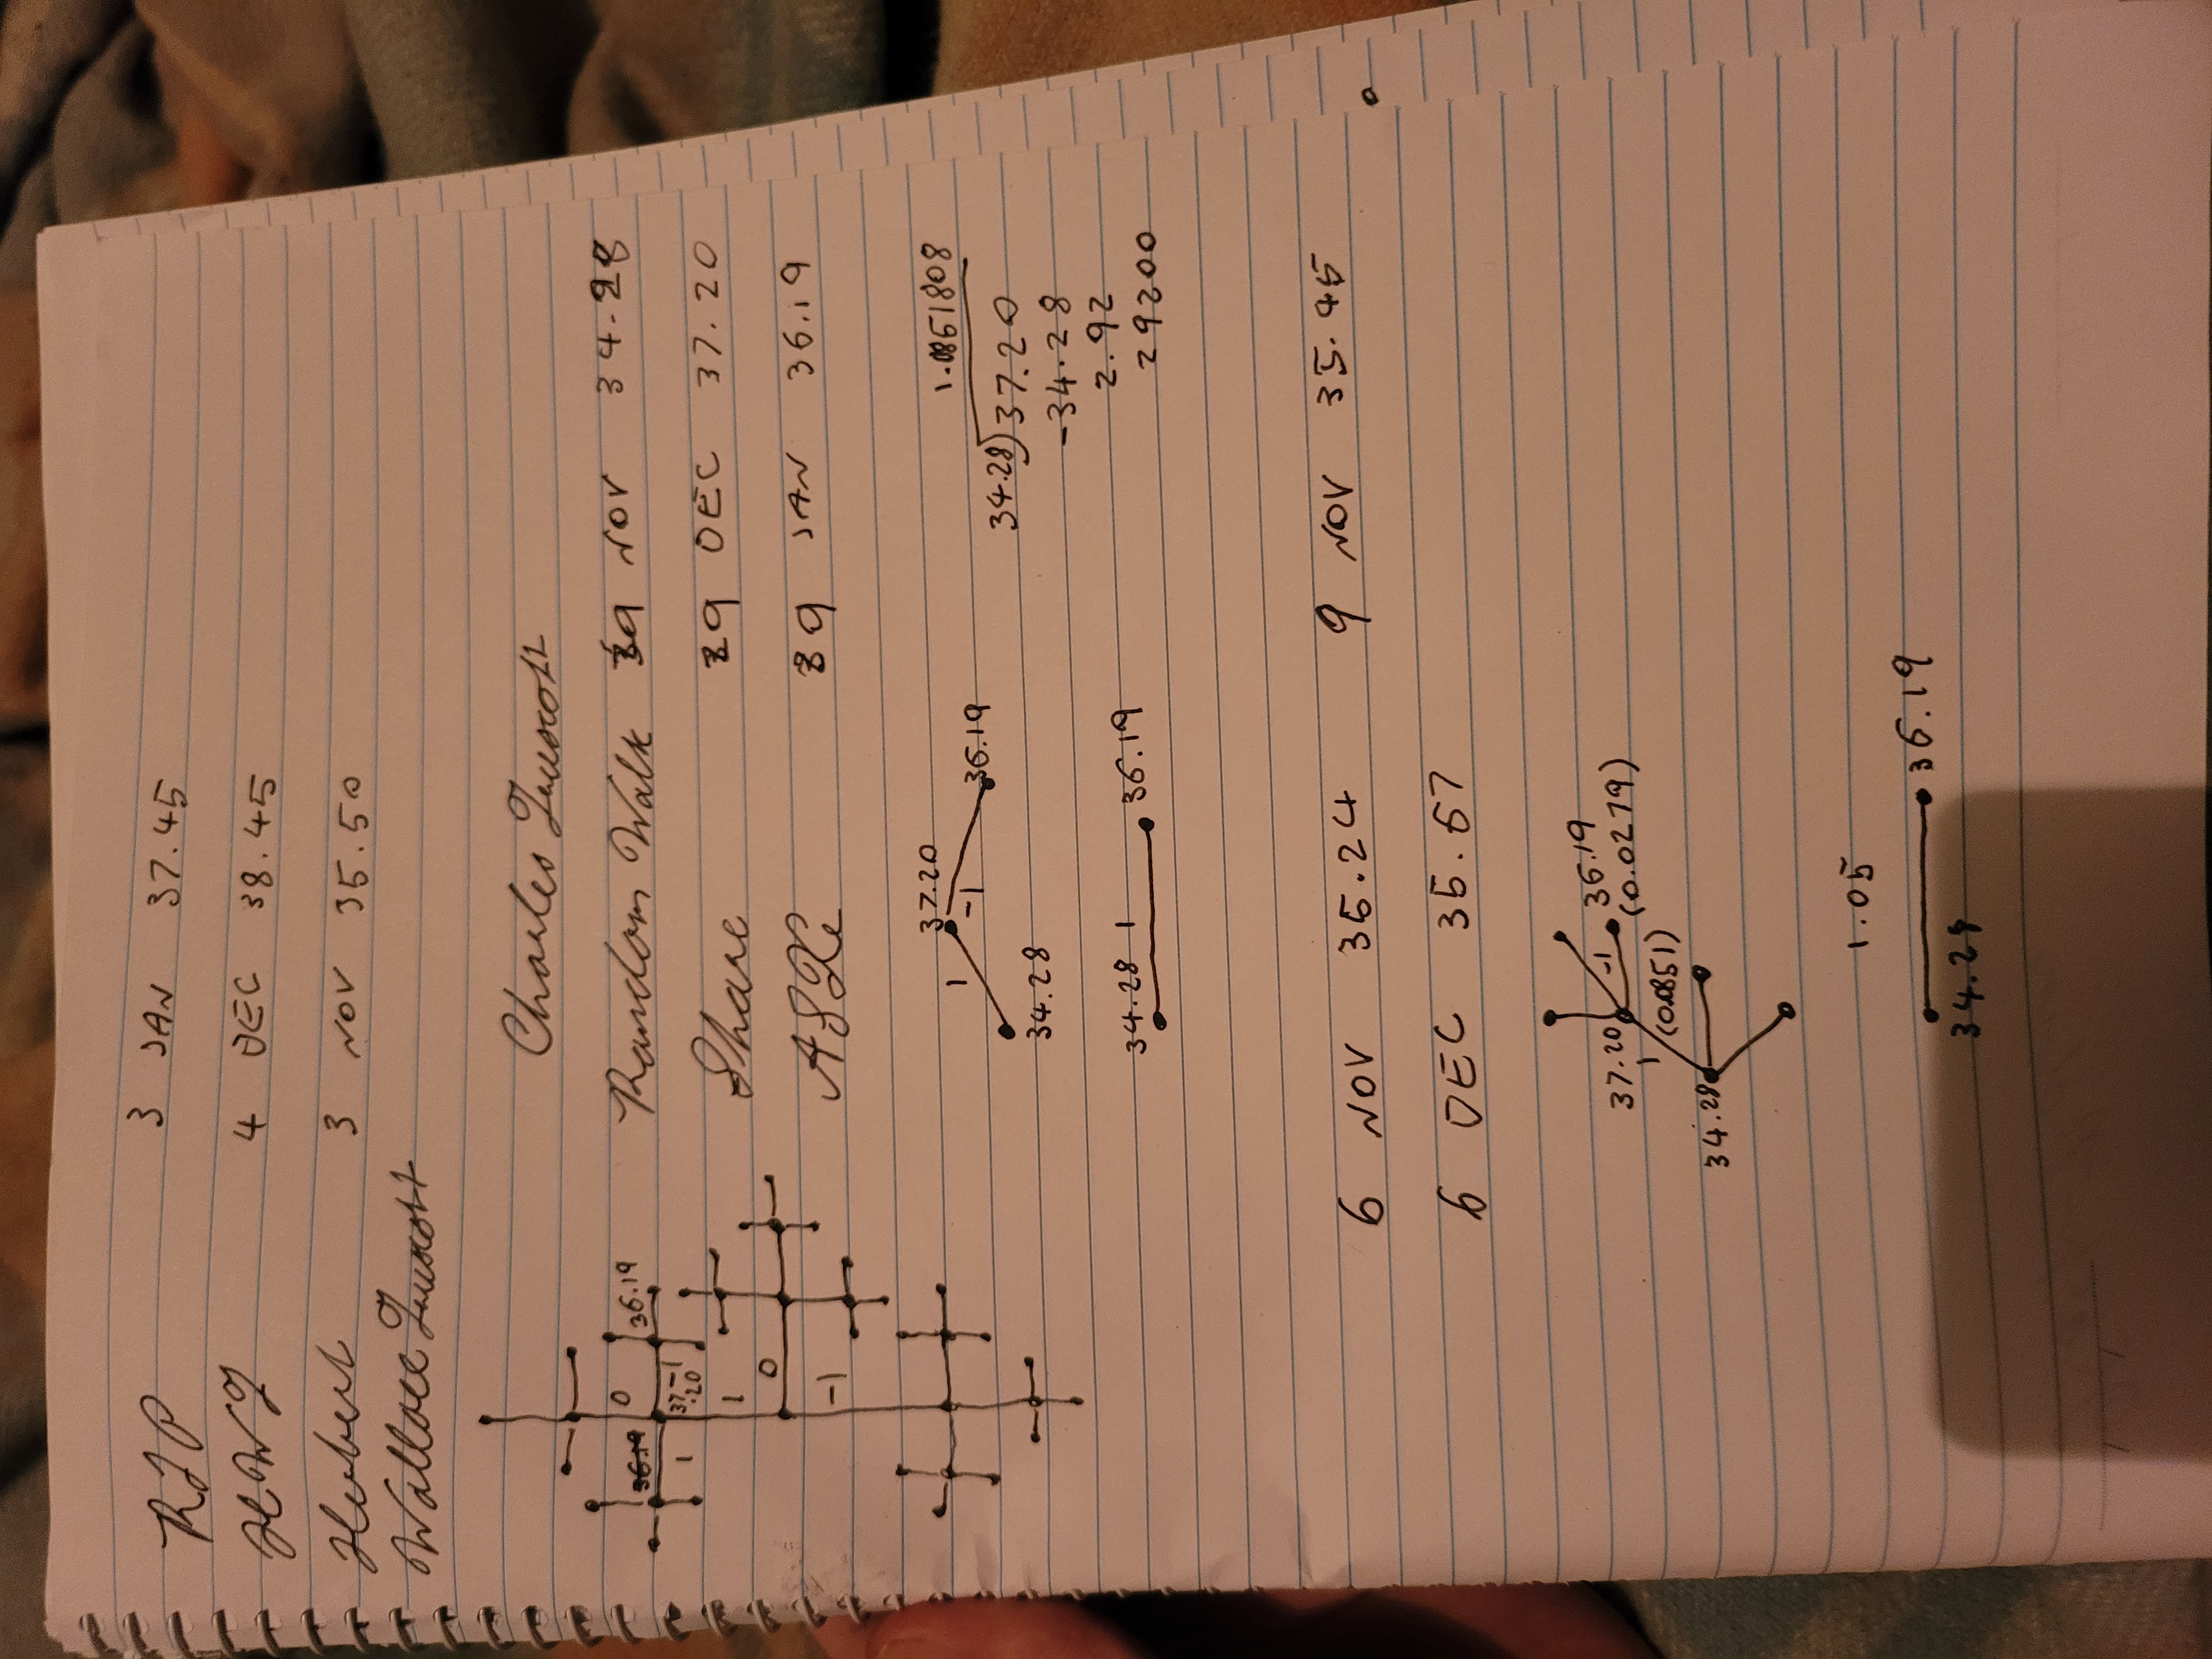 RIP 3 JAN 37.45
HWT 4 DEC 38.45
Herbert 3 NOV 35.50
Wallace Truscott
Charles Truscott
Random Walk 29 NOV 34.28
Share 29 DEC 37.20
ASX 29 JAN 36.19
0
36.19 36.19
1 37.20 -1
1
0
-1
37.20
1 -1 36.19
34.28
34.28 1 36.19
1.0851808
34.28)37.20
-34.28
2.92
29200
6 NOV 35.24 9 NOV 35.45
6 DEC 35.67
36.19
37.20 -1 (0.0279)
1 (0.0851)
34.28
1.05
36.19
34.28